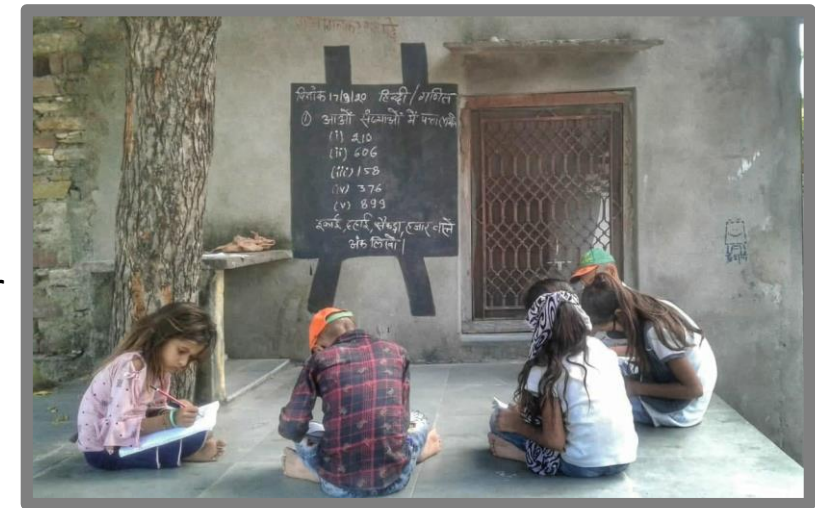 दिनांक 17/9/20 हिन्दी / गणित
① आओं संख्याओं में पता
(i) 210
(ii) 606
(iii) 158
(iv) 376
(v) 899
इकाई, दहाई, सैकड़ा, हजार वाले
अंक लिखो।